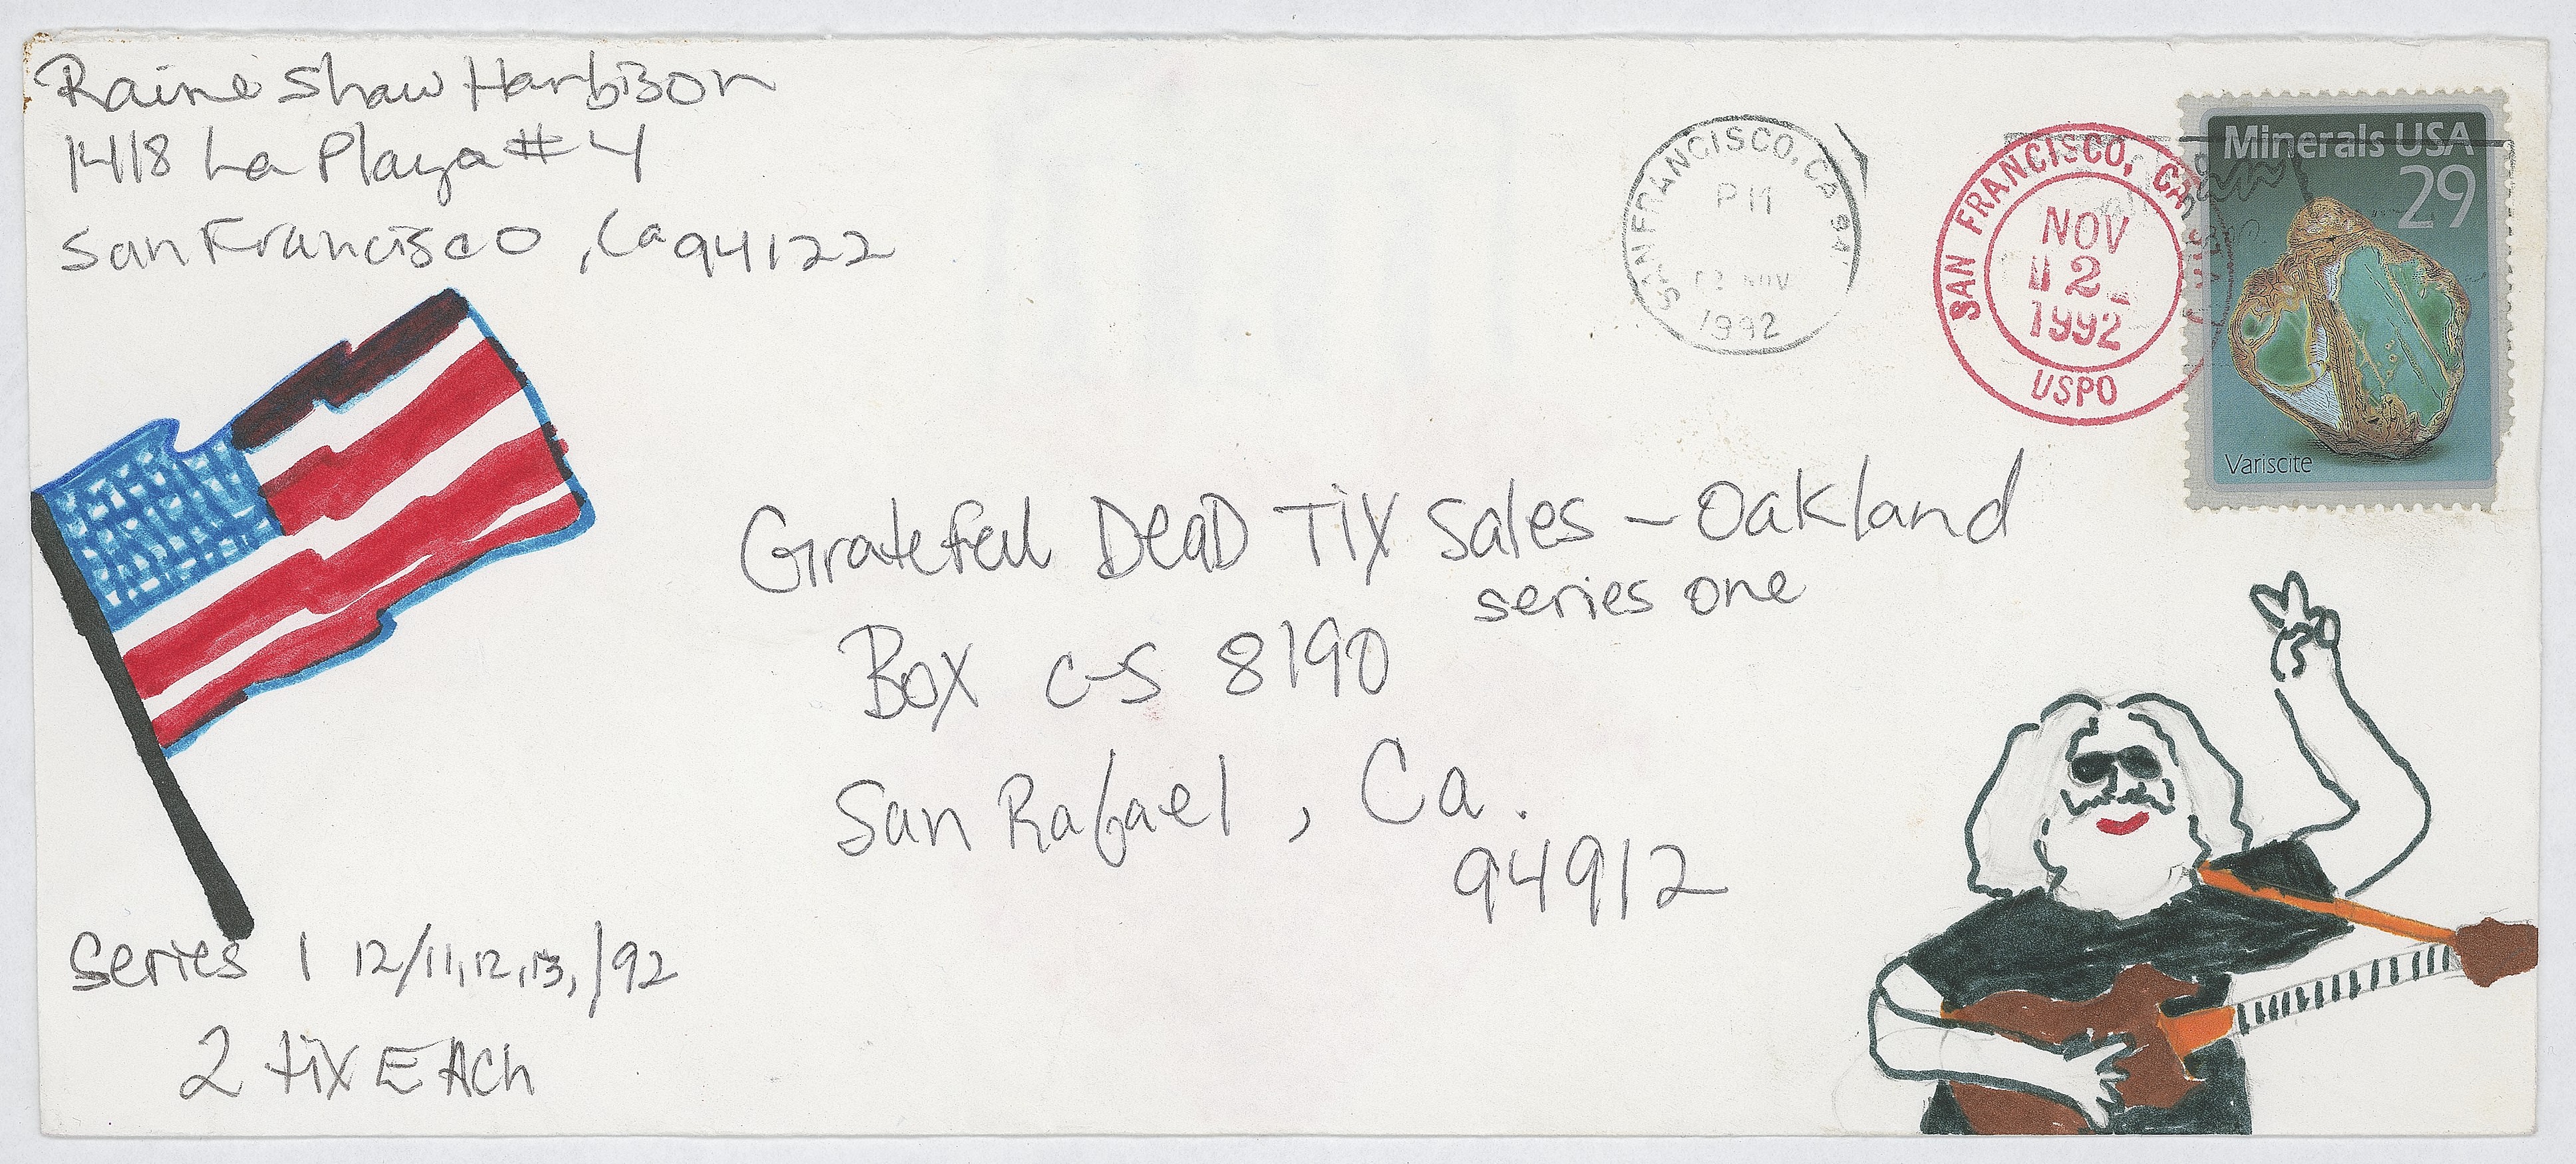 Raine Shaw Harbison
1418 La Playa #4
San Francisco, Ca 94122
SAN FRANCISCO, CA 941
PM
12 NOV
1992
SAN FRANCISCO, CA
NOV
12
1992
USPO
Minerals USA
29
Variscite
Grateful DeaD Tix Sales - Oakland
series one
Box C-S 8190
San Rafael, Ca.
94912
Series 1 12/11,12,13,/92
2 tix EAch